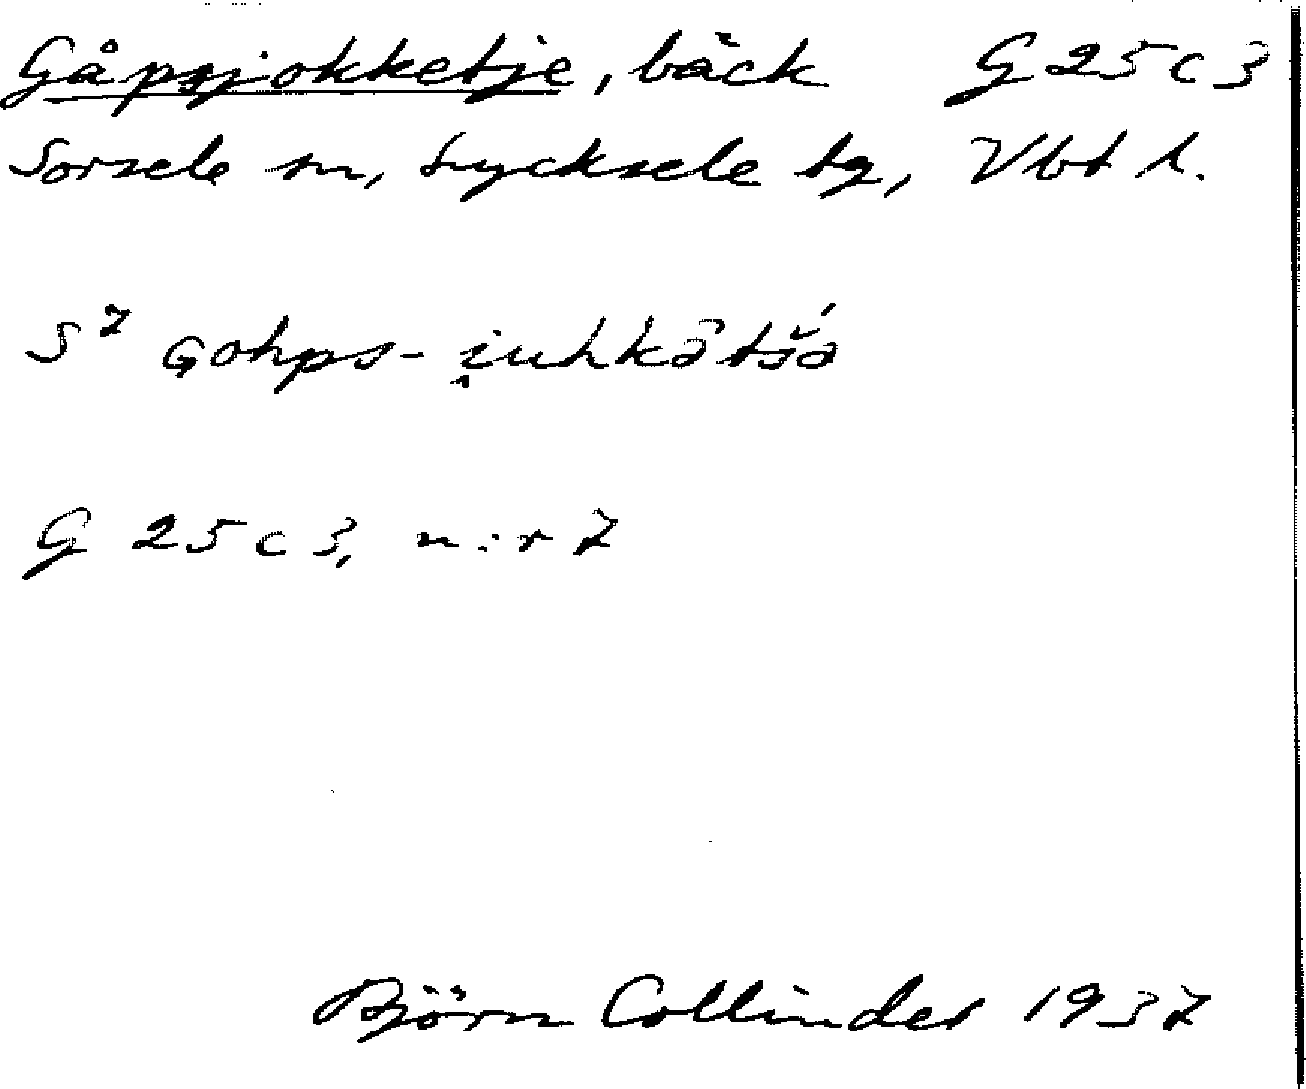 Gåpsjokketje, bäck G 25 c 3
Sorsele sn, Lycksele tg, Vbt l.
S⁷ Gohps- i̯uhkātšá
G 25 c 3, n:r 7
Björn Collinder 1937